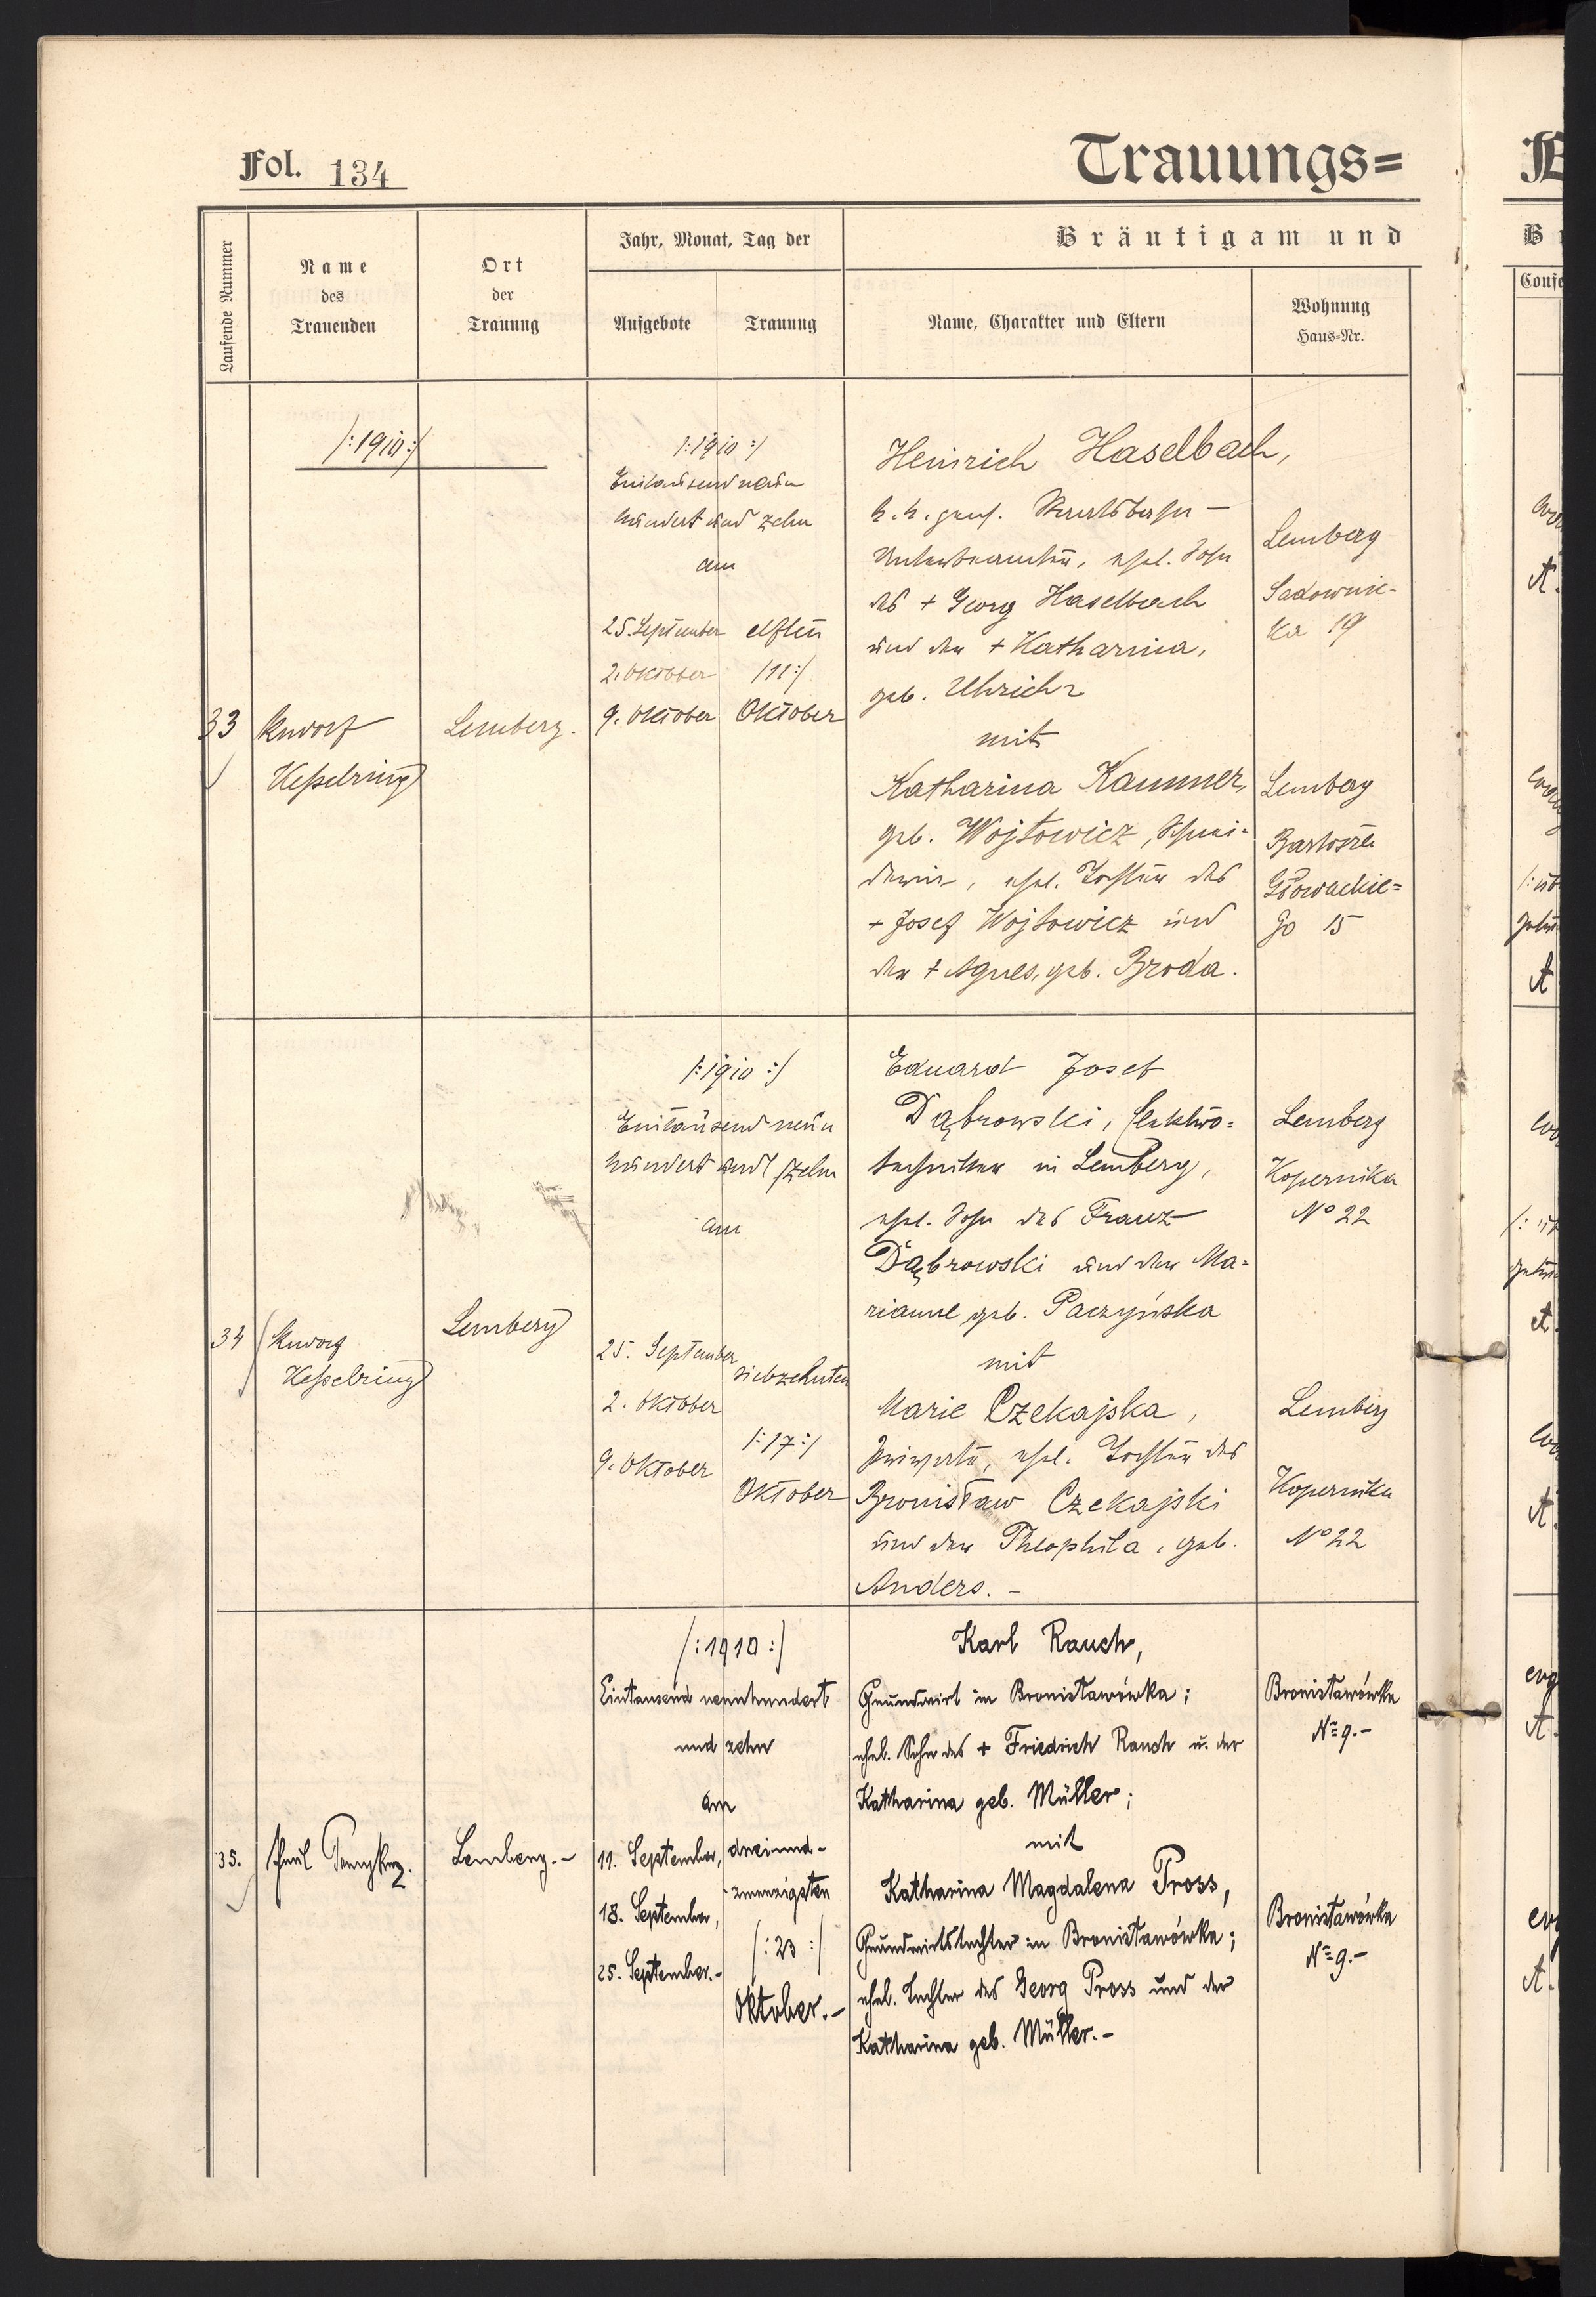 Fol. 134
Trauungs=
Laufende Nummer
Name
des
Trauenden
Ort
der
Trauung
Jahr, Monat, Tag der
Aufgebote
Trauung
Bräutigam und
Name, Charakter und Eltern
Wohnung
Haus-Nr.
/:1910:/
33
Hesselring
Lemberg.
/:1910:/
Eintausend neun
hundert und zehn
am
25. September
2. Oktober
9. Oktober
elften
/11:/
Oktober
Heinrich Haselbach,
k. k. pens. Staatsbahn-
Unterbeamter, ehel. Sohn
des + Georg Haselbach
und der + Katharina,
geb. Uhrich
mit
Katharina Kammer,
geb. Wojtowicz, Schnei=
derin, ehel. Tochter des
+ Josef Wojtowicz und
der + Agnes, geb. Broda.
Lemberg
Sadownic-
ka 19
Lemberg
Bartosza
Głowackie=
go 15
34
Hesselring
Lemberg
/:1910:/
Eintausend neun
hundert und zehn
am
25. September
2. Oktober
9. Oktober
siebzehnten
/:17:/
Oktober
Eduard Josef
Dąbrowski, Elektro=
techniker in Lemberg,
ehel. Sohn des Franz
Dąbrowski und der Ma=
rianne geb. Paczyńska
mit
Marie Czekajska,
Private, ehel. Tochter des
Bronisław Czekajski
und der Theophila, geb.
Anders. -
Lemberg
Kopernika
No 22
Lemberg
Kopernika
No 22
35.
Lemberg.-
/:1910:/
Eintausend neunhundert
und zehn
am
11. September,
18. September,
25. September.-
dreiund-
zwanzigsten
/:23:/
Oktober.-
Karl Rauch,
Grundwirt in Bronisławówka;
ehel. Sohn des + Friedrich Rauch u. der
Katharina geb. Müller;
mit
Katharina Magdalena Pross,
Grundwirtstochter in Bronisławówka;
ehel. Tochter des Georg Pross und der
Katharina geb. Müller.-
Bronisławówka
No 9.-
Bronisławówka
No 9.-